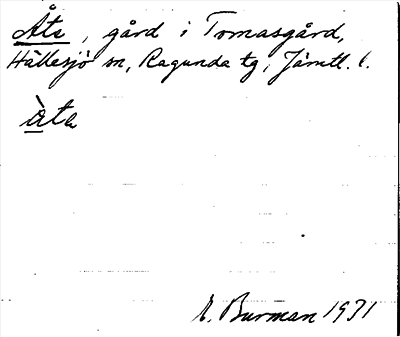 Åte, gård i Tomasgård,
Hällesjö sn, Ragunda tg, Jämtl. l.
àta
E. Burman 1931